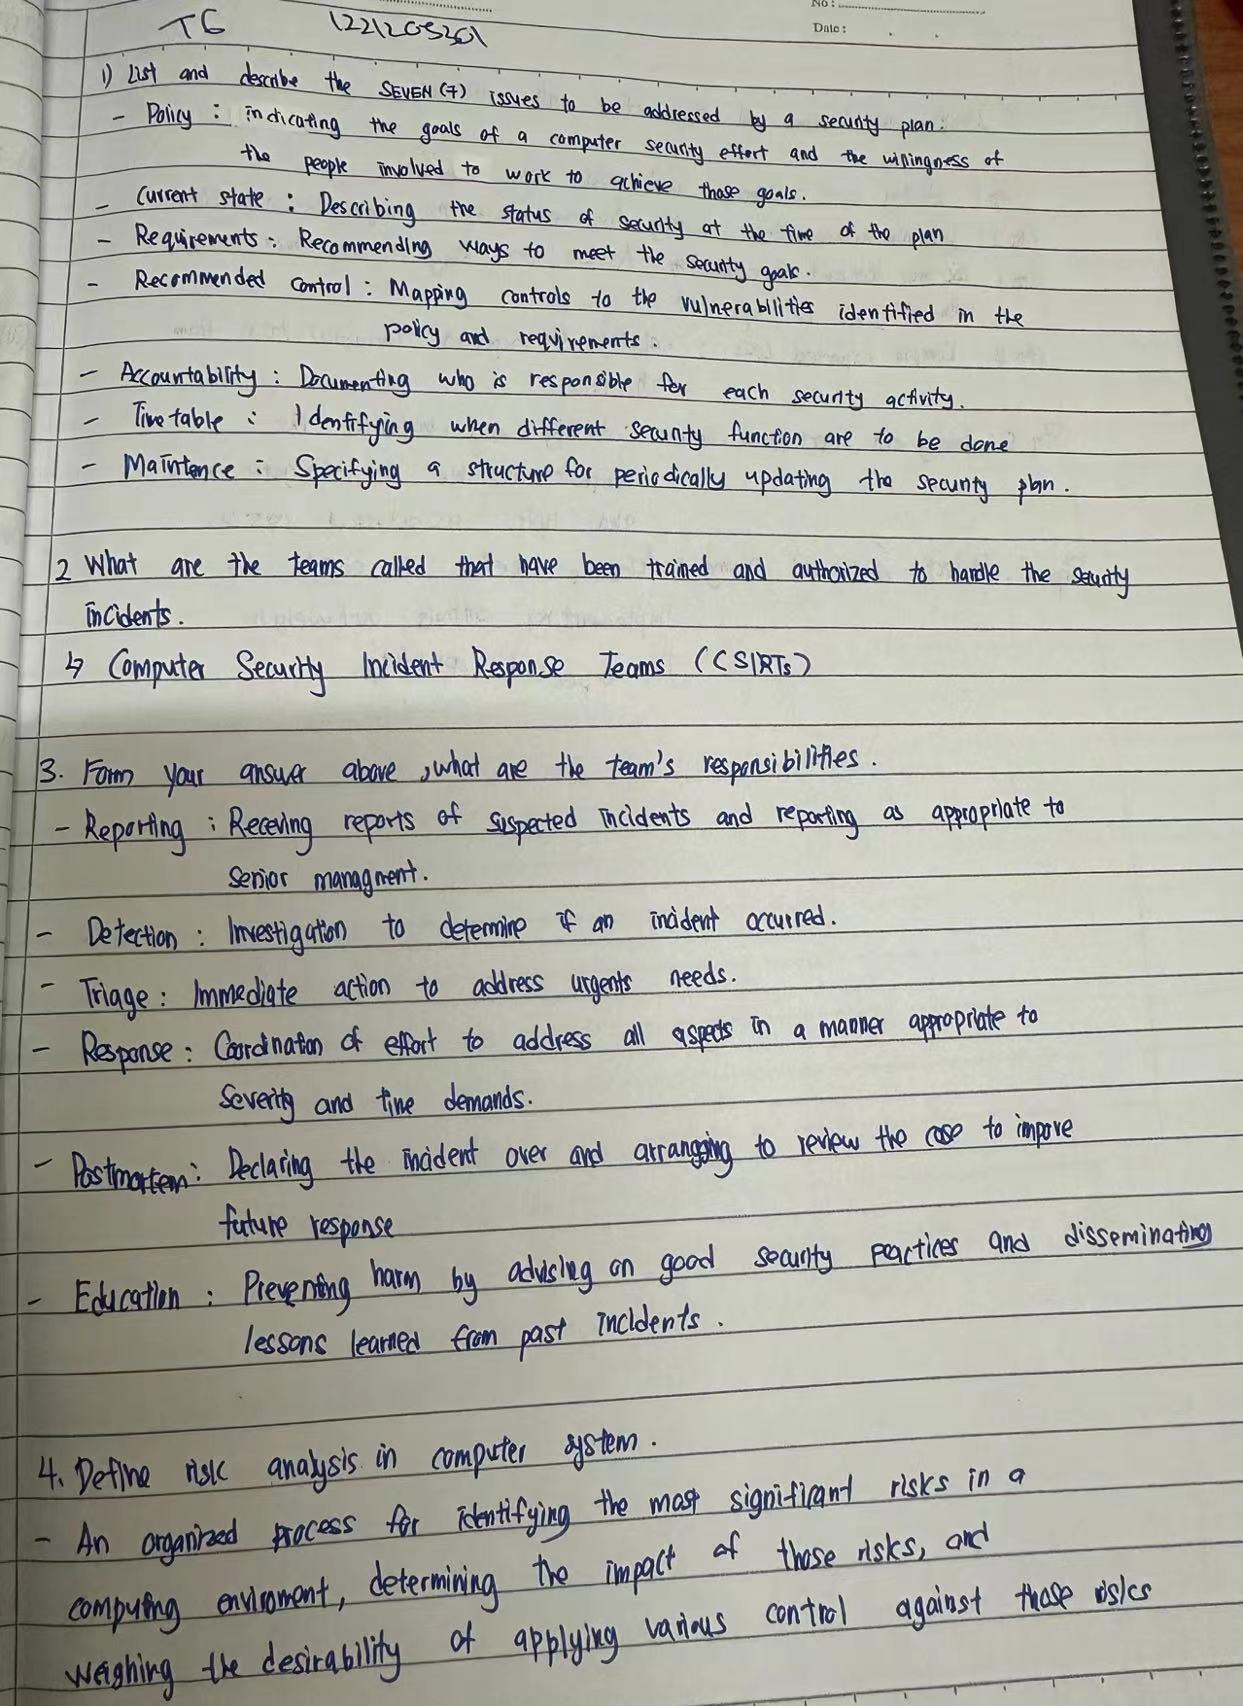 No:
Date:
T6 1221205201
1) List and describe the SEVEN (7) issues to be addressed by a security plan.
- Policy : indicating the goals of a computer security effort and the willingness of
the people involved to work to achieve those goals.
- Current state : Describing the status of security at the time of the plan
- Requirements : Recommending ways to meet the security goals.
- Recommended control : Mapping controls to the vulnerabilities identified in the
policy and requirements.
- Accountability : Documenting who is responsible for each security activity.
- Timetable : Identifying when different security function are to be done
- Maintence : Specifying a structure for periodically updating the security plan.
2 What are the teams called that have been trained and authorized to handle the security
incidents.
↳ Computer Security Incident Response Teams (CSIRTs)
3. Form your answer above, what are the team's responsibilities.
- Reporting : Receving reports of suspected incidents and reporting as appropriate to
senior managment.
- Detection : Investigation to determine if an incident occurred.
- Triage : Immediate action to address urgents needs.
- Response : Coordination of effort to address all aspects in a manner appropriate to
severity and time demands.
- Postmortem : Declaring the incident over and arranging to review the case to impove
future response
- Education : Preventing harm by advising on good security practices and disseminating
lessons learned from past incidents.
4. Define risk analysis in computer system.
- An organized process for identifying the most significant risks in a
computing enviroment, determining the impact of those risks, and
weighing the desirability of applying various control against those risks